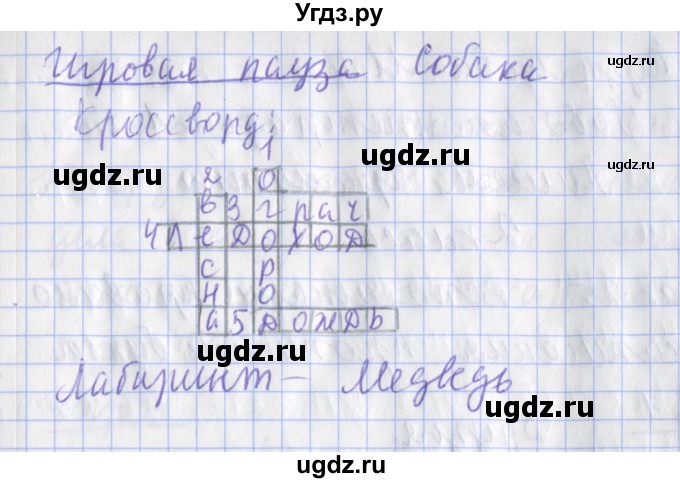 Угдз.ру
Игровая пауза Собака
ugdz.ru
Кроссворд:
ugdz.ru
1
ugdz.ru
2 О
в 3 г р а ч
4 л е д о х о д
с р
ugdz.ru
н о
а 5 д о ж д ь
ugdz.ru
ugdz.ru
Лабиринт – Медведь
ugdz.ru
ugdz.ru
ugdz.ru